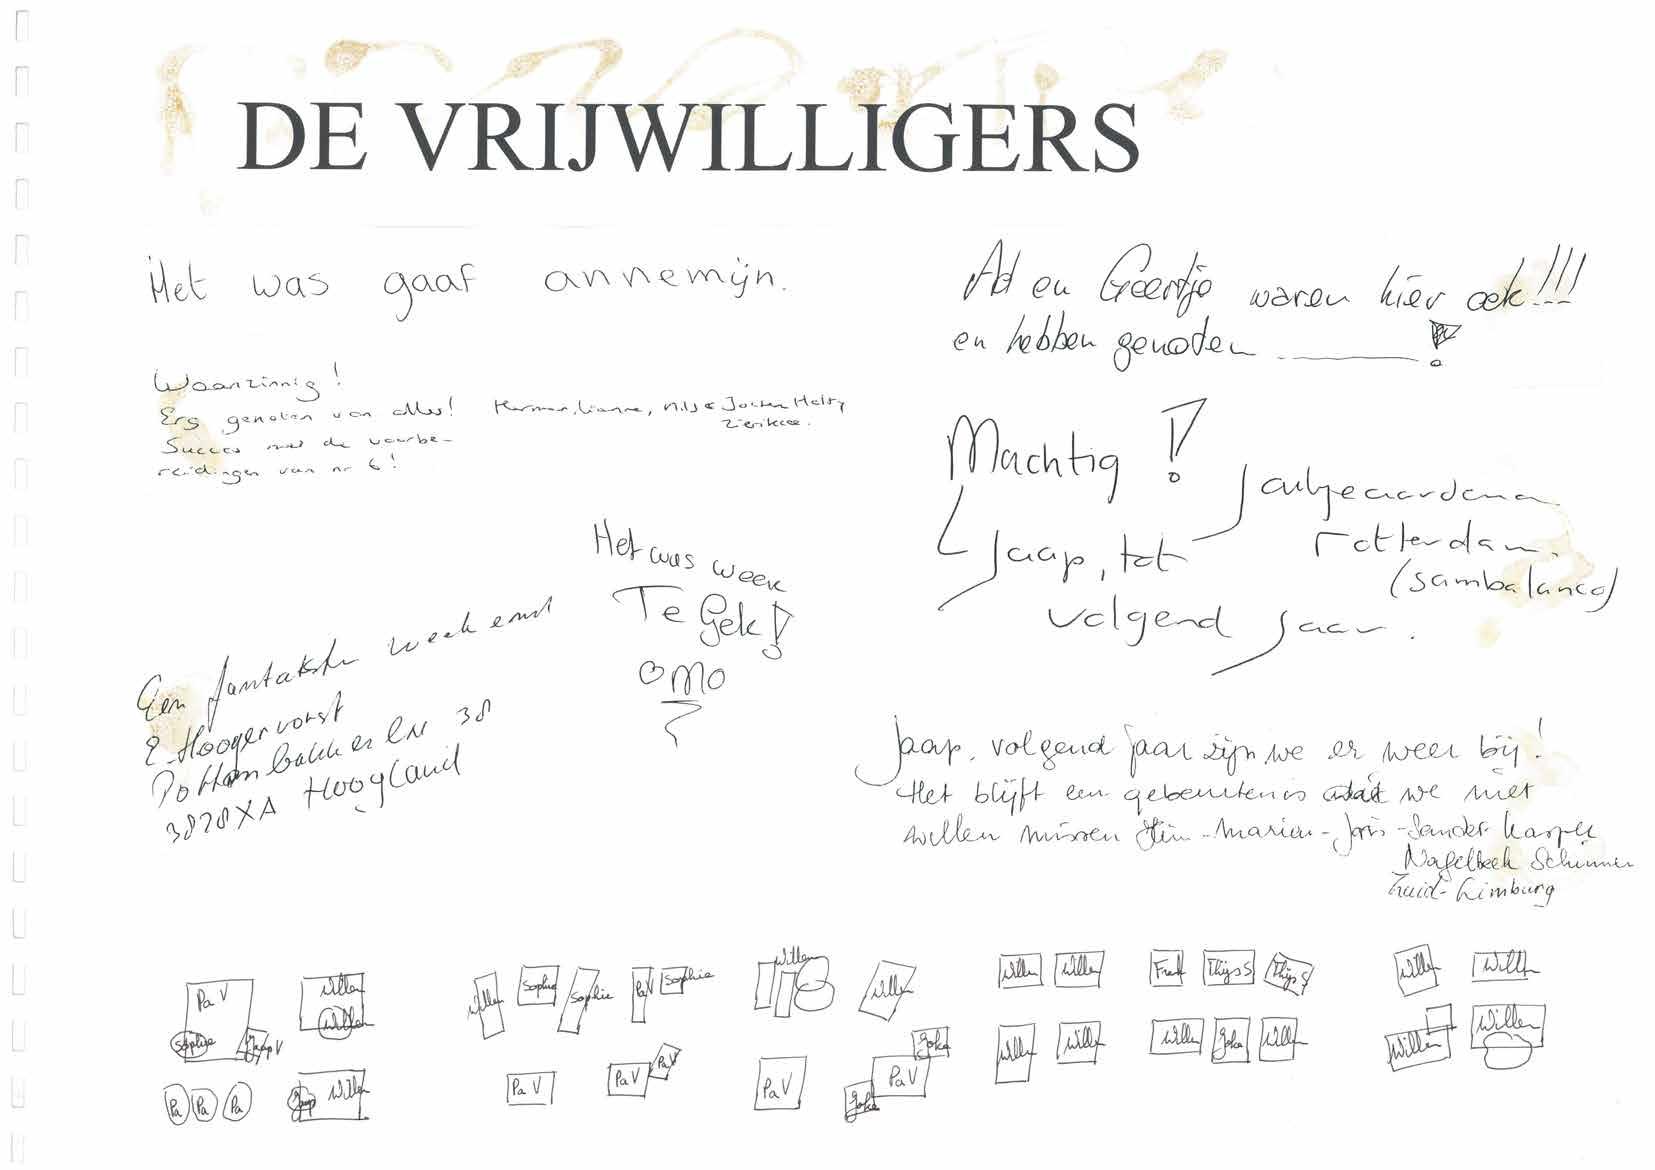 DE VRIJWILLIGERS
Het was gaaf annemijn.
Ad en Geertje waren hier ook!!!
en hebben genoten !
Waanzinnig!
Erg genoten van alles! Herman, Lianne, Nils & Jochen
Zierikzee.
Succes met de voorbe-
reidingen van nr 6!
Machtig!
Jaap, tot
volgend jaar.
Rotterdam.
(sambalanco)
Het was weer
Te Gek!
OMO
Een fantatste weekend
E. Hoogervorst
Pottenbakker 38
3828XA Hoogland
Jaap, volgend jaar zijn we er weer bij!
Het blijft een gebeurtenis we niet
willen missen - Marien - Joris - Sander
Schinnen
Zuid-Limburg
Pa V
Sophie
Jaap V
Pa Pa Pa
Willem
Willem
Jaap Willem
Willem Sophie Sophie Pa V Sophie
Pa V Pa V Pa V
Willem Willem
Pa V Joke Pa V Joke
Willem Willem Thijs S Thijs S
Willem Willem Willem Joke Willem
Willem Willem
Willem Willem